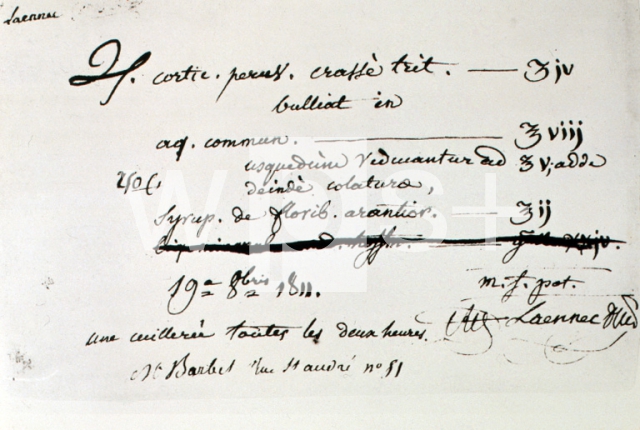 Laennec
♃. cortic. peruv. crassè trit. — ʒ jv
bulliat in
aq. commun. — ℥ viij
usquedùm reducantur ad ℥ v; adde
deindè colaturæ,
Syrup. de florib. arantior. — ℥ ij
19a 8bris 1811. m. f. pot.
une cuillerée toutes les deux heures. Laennec
Mr Barbet rue St andré no 51
wps+